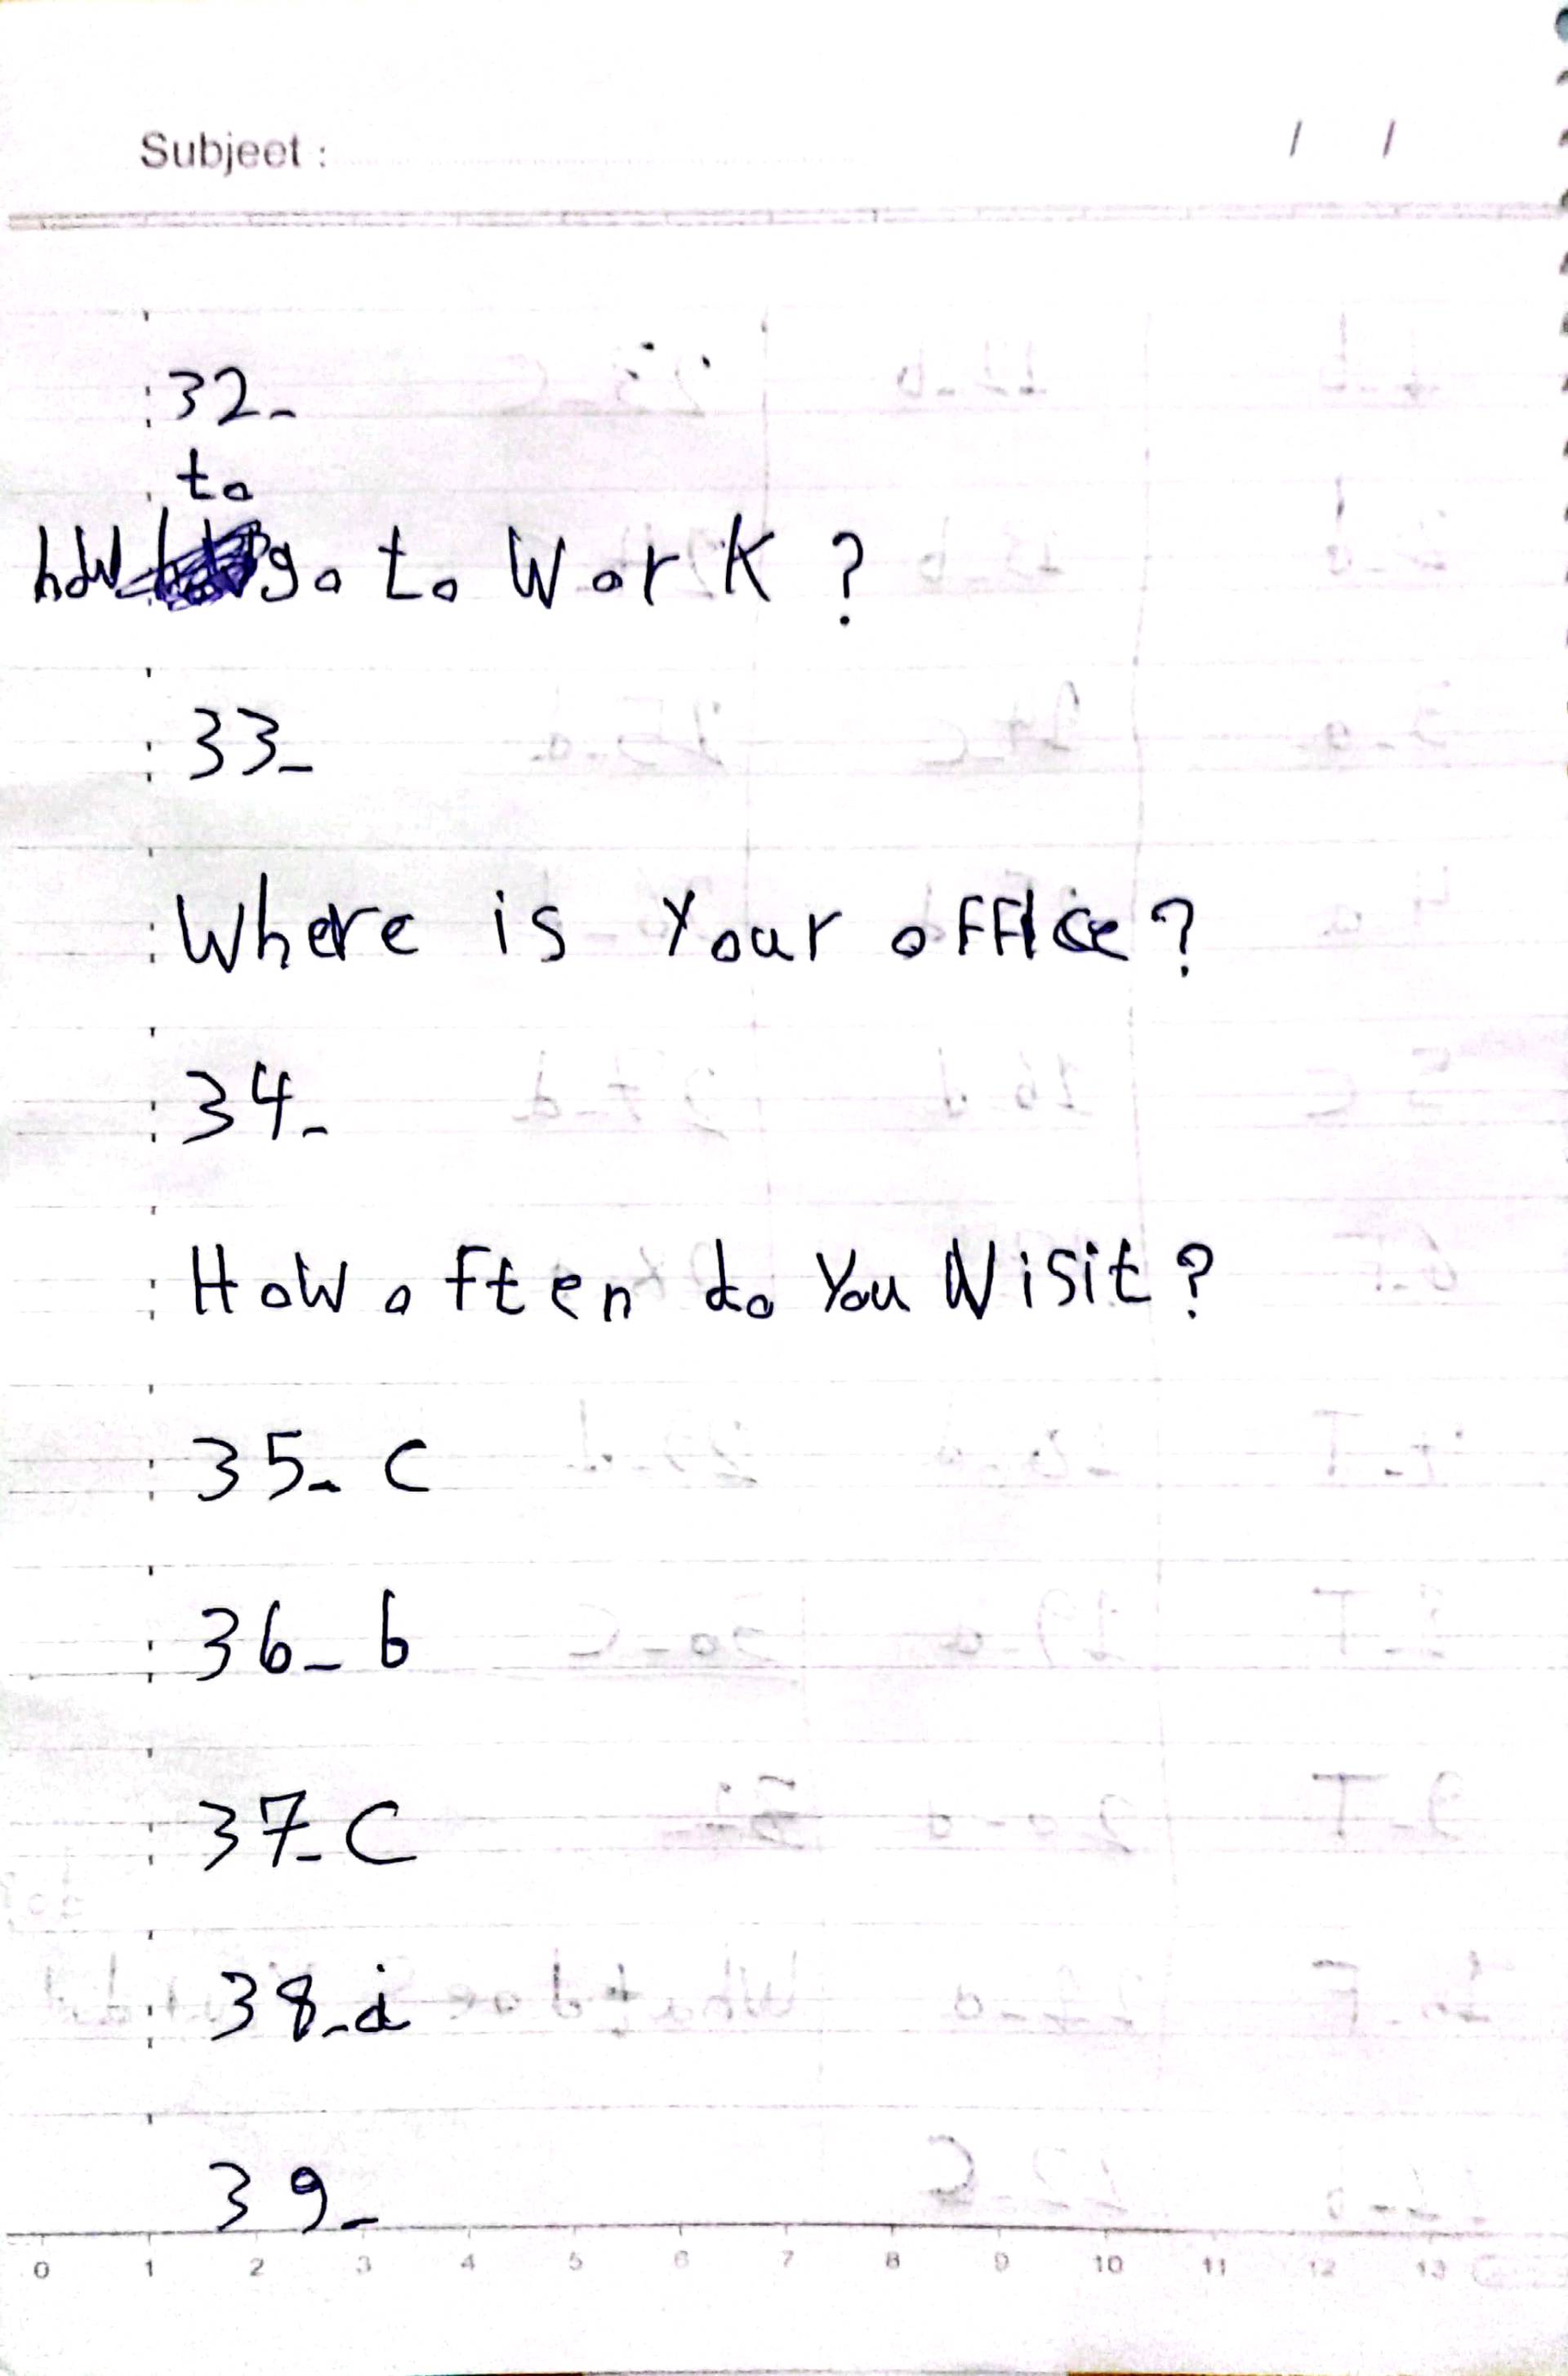 Subject :
/ /
32-
to
how go to work ?
33-
Where is Your office?
34-
How often do You Visit?
35- C
36- b
37- C
38-d
39-
0 1 2 3 4 5 6 7 8 9 10 11 12 13